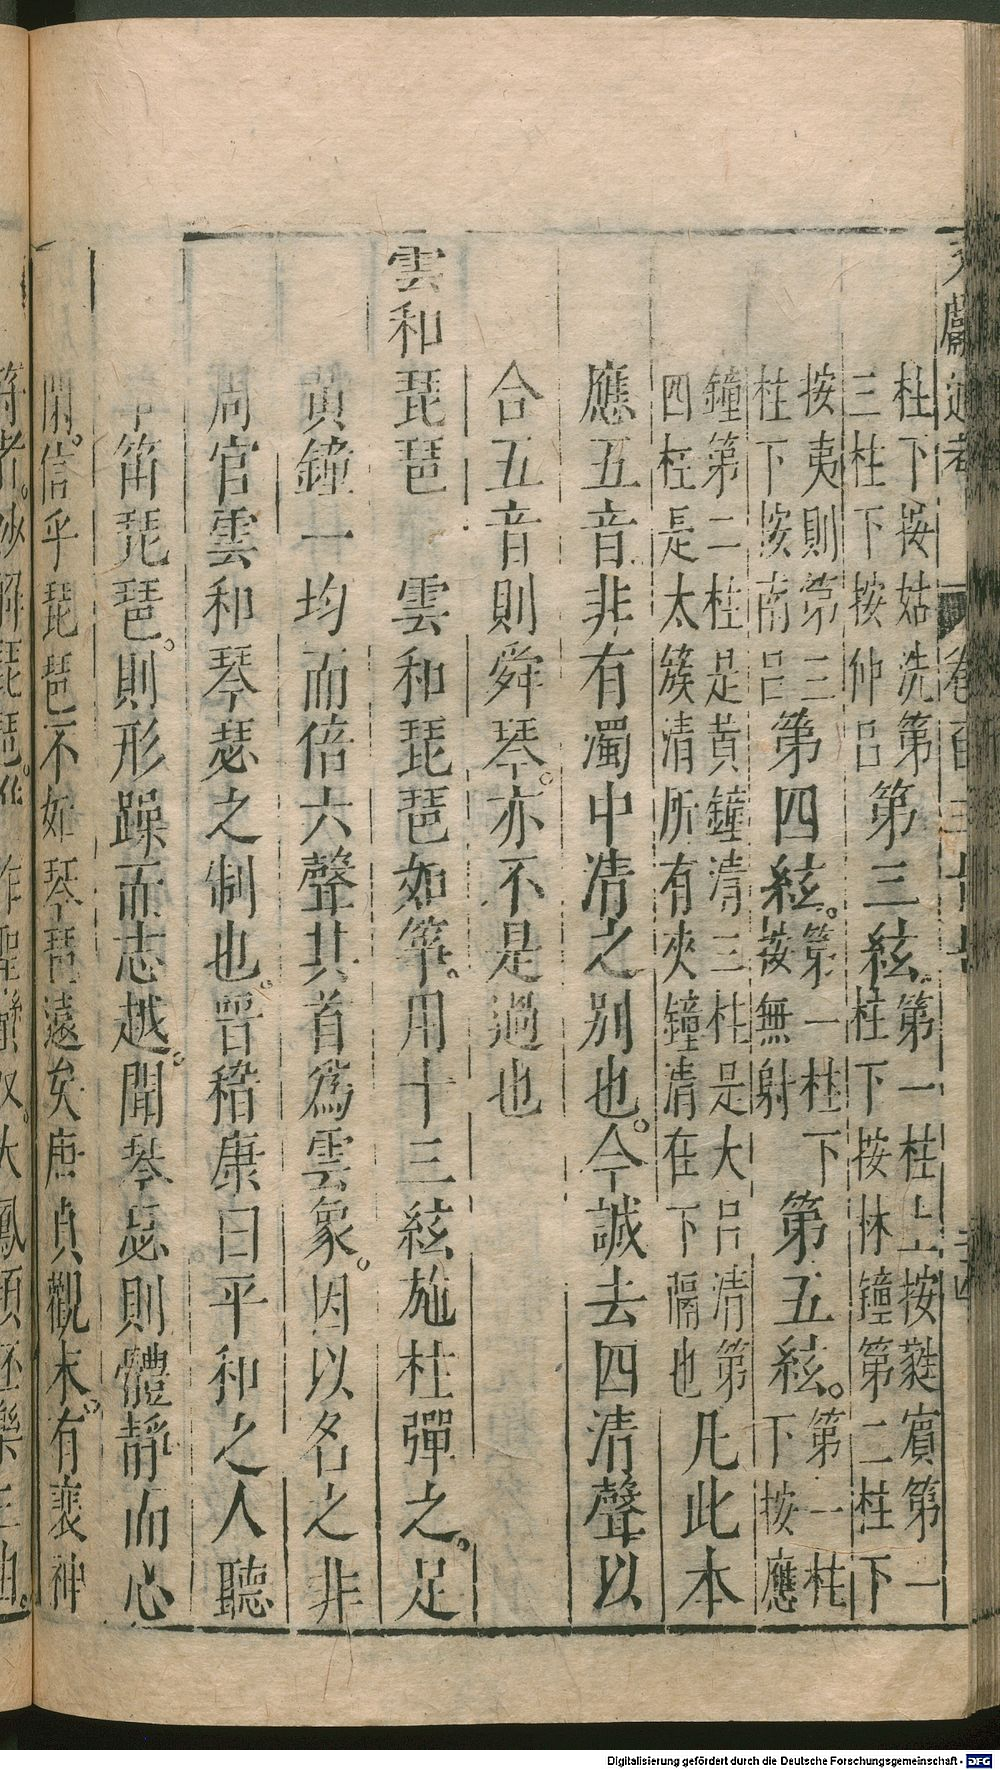 文獻通考 卷百三十七 二十四
柱下按姑洗第
三柱下按仲呂
第三絃
第一柱上按蕤賓第一
柱下按林鐘第二柱下
按夷則第三
柱下按南呂
第四絃
第一柱下
按無射
第五絃
第一柱
下按應
鐘第二柱是黃鐘清三柱是大呂清第
四柱是太簇清所有夾鐘清在下隔也
凡此本
應五音非有濁中清之別也今誠去四清聲以
合五音則舜琴亦不是過也
雲和琵琶 雲和琵琶如箏用十三絃施柱彈之足
黃鐘一均而倍六聲其首爲雲象因以名之非
周官雲和琴瑟之制也晉稽康曰平和之人聽
笛琵琶則形躁而志越聞琴瑟則體靜而心
閑信乎琵琶不如琴瑟遠矣唐貞觀末有裴神
符者妙解琵琶作
大鳳傾杯樂三曲
Digitalisierung gefördert durch die Deutsche Forschungsgemeinschaft - DFG